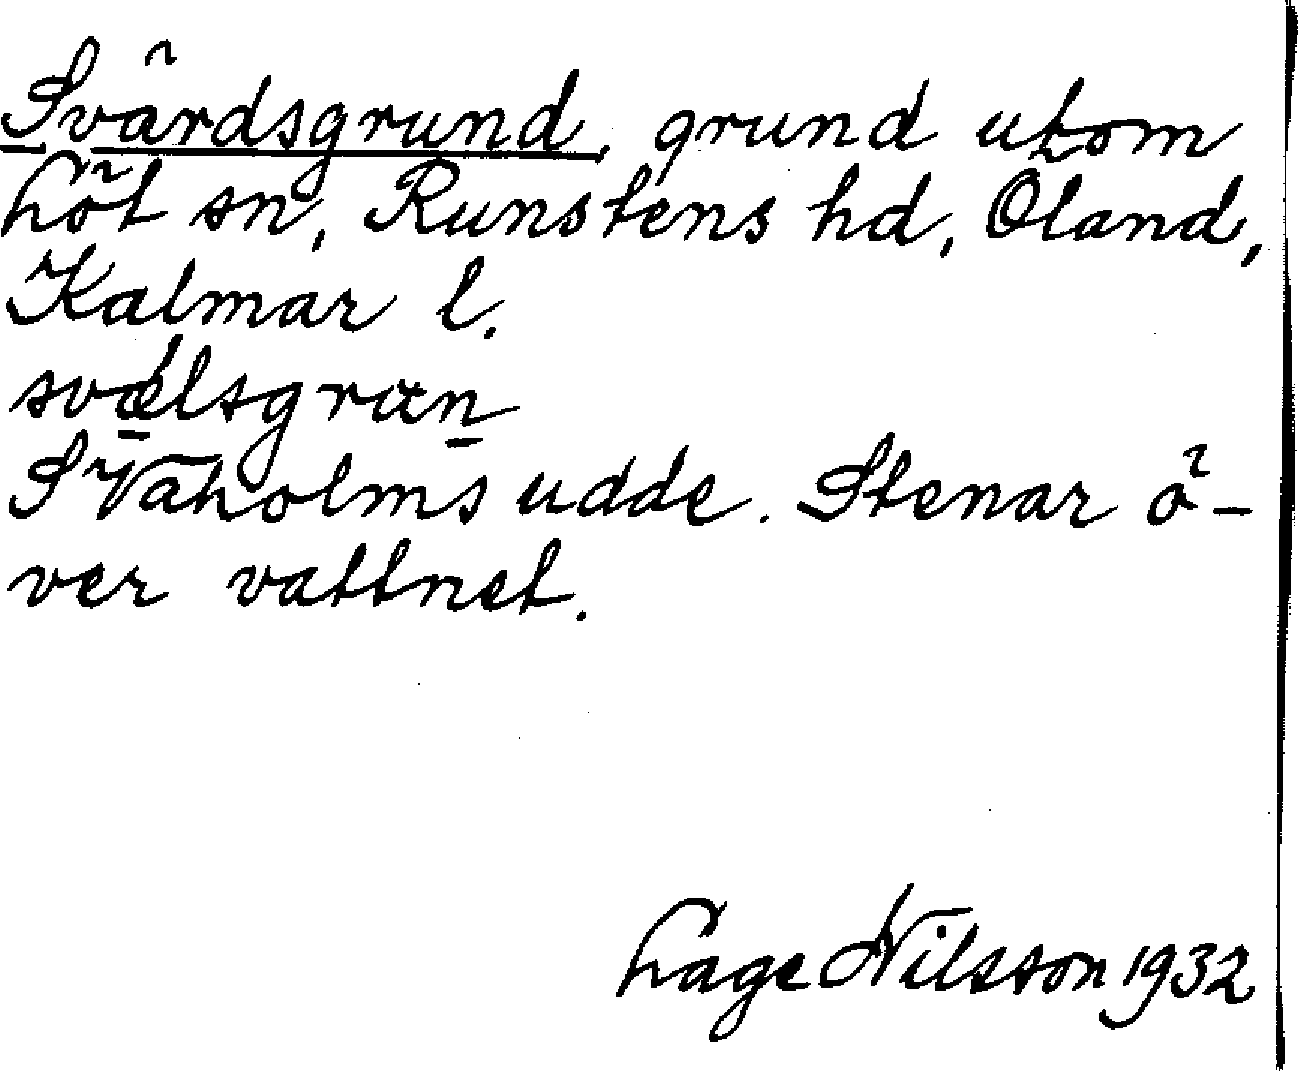 Svärdsgrund, grund utom
Löt sn, Runstens hd, Öland,
Kalmar l.
sväḷsgran
S Våholms udde. Stenar ö-
ver vattnet.
Lage Nilsson 1932